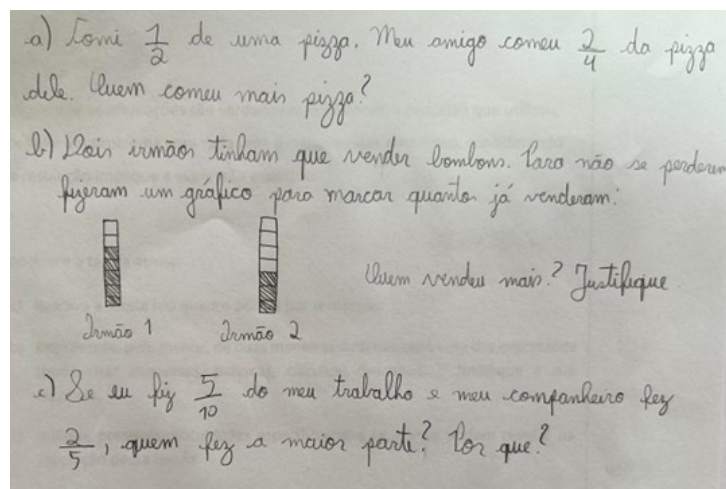 a) Comi 1/2 de uma pizza. Meu amigo comeu 2/4 da pizza
dele. Quem comeu mais pizza?
b) Dois irmãos tinham que vender bombons. Para não se perderem
fizeram um gráfico para marcar quanto já venderam:
Quem vendeu mais? Justifique
Irmão 1 Irmão 2
c) Se eu fiz 5/10 do meu trabalho e meu companheiro fez
2/5, quem fez a maior parte? Por que?